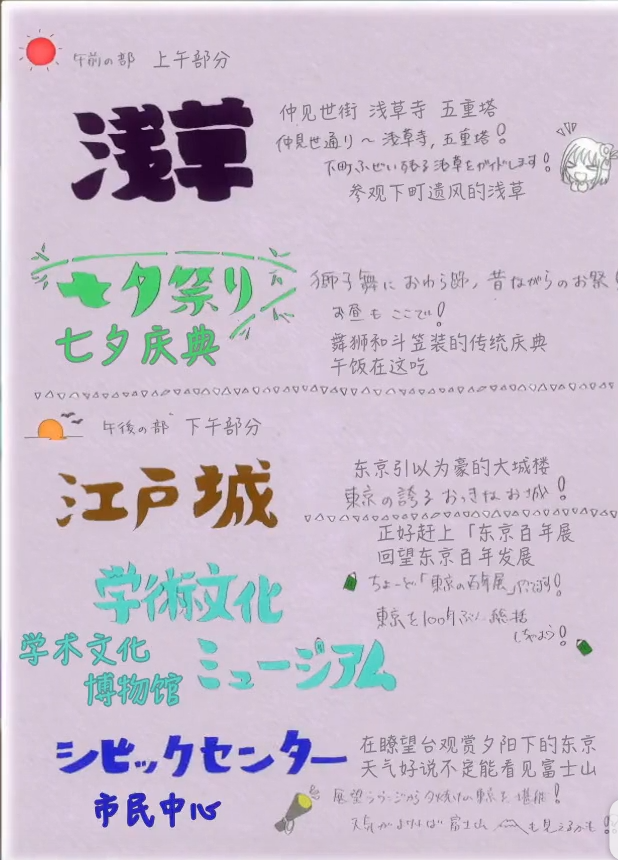 午前の部 上午部分
浅草
仲见世街 浅草寺 五重塔
仲見世通り〜浅草寺,五重塔!
下町ふぜい残る浅草をガイドします!
参观下町遗风的浅草
七夕祭り
七夕庆典
獅子舞に おわら踊り 昔ながらのお祭
お昼も ここで!
舞狮和斗笠装的传统庆典
午饭在这吃
午後の部 下午部分
江戸城
东京引以为豪的大城楼
東京の誇る おっきなお城!
学術文化
ミュージアム
学术文化
博物馆
正好赶上「东京百年展
回望东京百年发展
ちょーど「東京の百年展」
東京を100年ぶん 総括
しちゃおう!
シビックセンター
市民中心
在瞭望台观赏夕阳下的东京
天气好说不定能看见富士山
展望ラウンジから夕焼けの東京を堪能!
天気がよければ 富士山 も見えるかも!